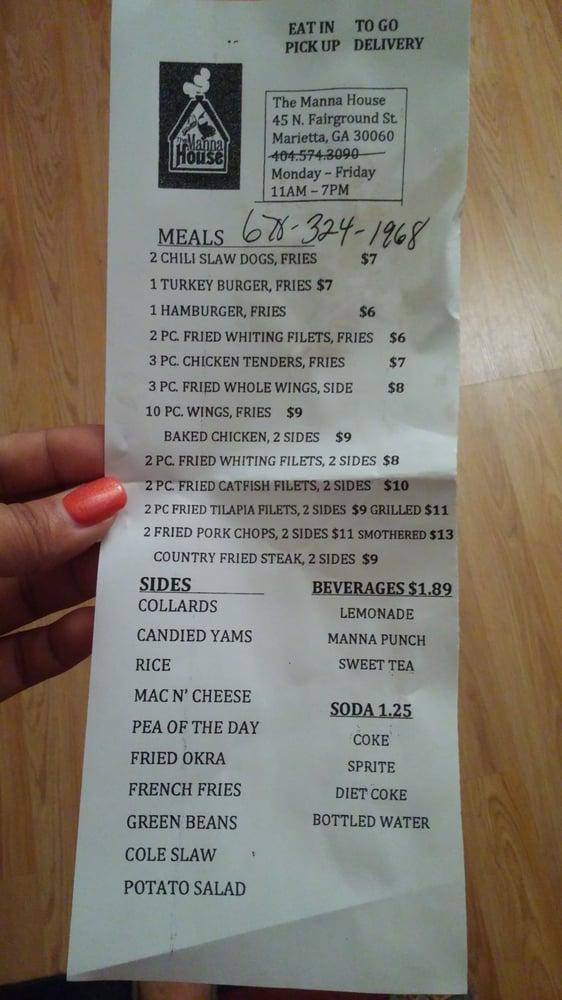 EAT IN TO GO
PICK UP DELIVERY
The Manna House
The Manna House
45 N. Fairground St.
Marietta, GA 30060
404.574.3090
Monday – Friday
11AM – 7PM
MEALS 678-324-1968
2 CHILI SLAW DOGS, FRIES $7
1 TURKEY BURGER, FRIES $7
1 HAMBURGER, FRIES $6
2 PC. FRIED WHITING FILETS, FRIES $6
3 PC. CHICKEN TENDERS, FRIES $7
3 PC. FRIED WHOLE WINGS, SIDE $8
10 PC. WINGS, FRIES $9
BAKED CHICKEN, 2 SIDES $9
2 PC. FRIED WHITING FILETS, 2 SIDES $8
2 PC. FRIED CATFISH FILETS, 2 SIDES $10
2 PC FRIED TILAPIA FILETS, 2 SIDES $9 GRILLED $11
2 FRIED PORK CHOPS, 2 SIDES $11 SMOTHERED $13
COUNTRY FRIED STEAK, 2 SIDES $9
SIDES
COLLARDS
CANDIED YAMS
RICE
MAC N' CHEESE
PEA OF THE DAY
FRIED OKRA
FRENCH FRIES
GREEN BEANS
COLE SLAW
POTATO SALAD
BEVERAGES $1.89
LEMONADE
MANNA PUNCH
SWEET TEA
SODA 1.25
COKE
SPRITE
DIET COKE
BOTTLED WATER